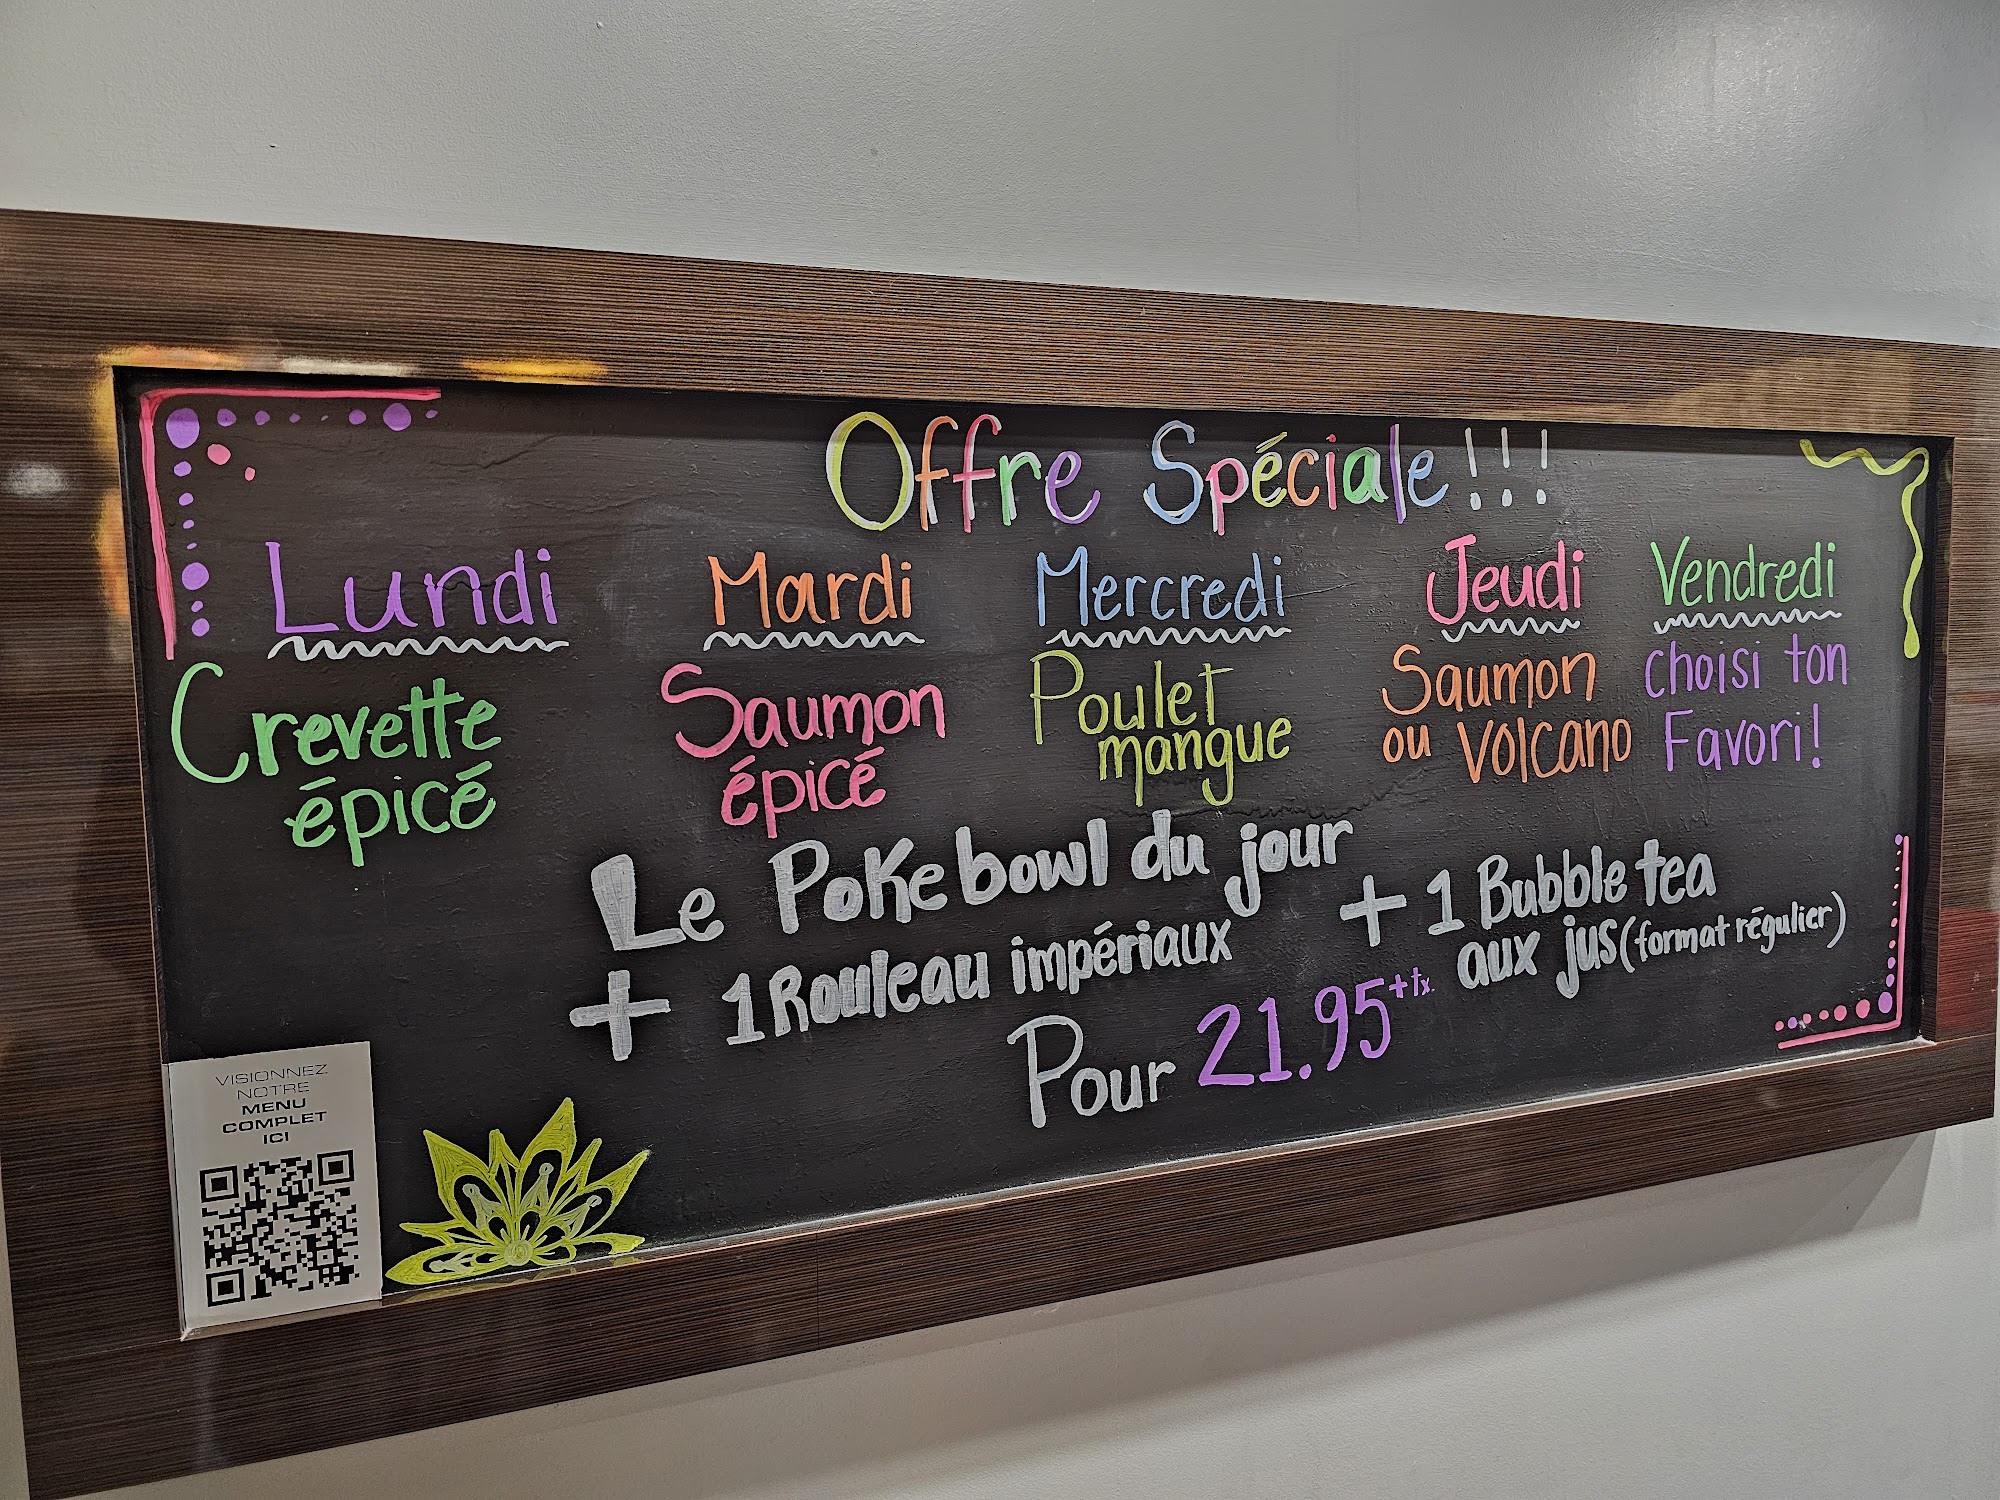 Offre Spéciale!!!
Lundi
Crevette
épicé
Mardi
Saumon
épicé
Mercredi
Poulet
mangue
Jeudi
Saumon
ou Volcano
Vendredi
choisi ton
Favori!
Le Poke bowl du jour
+ 1 Rouleau impériaux
+ 1 Bubble tea
aux jus (format régulier)
Pour 21.95 + tx.
VISIONNEZ
NOTRE
MENU
COMPLET
ICI